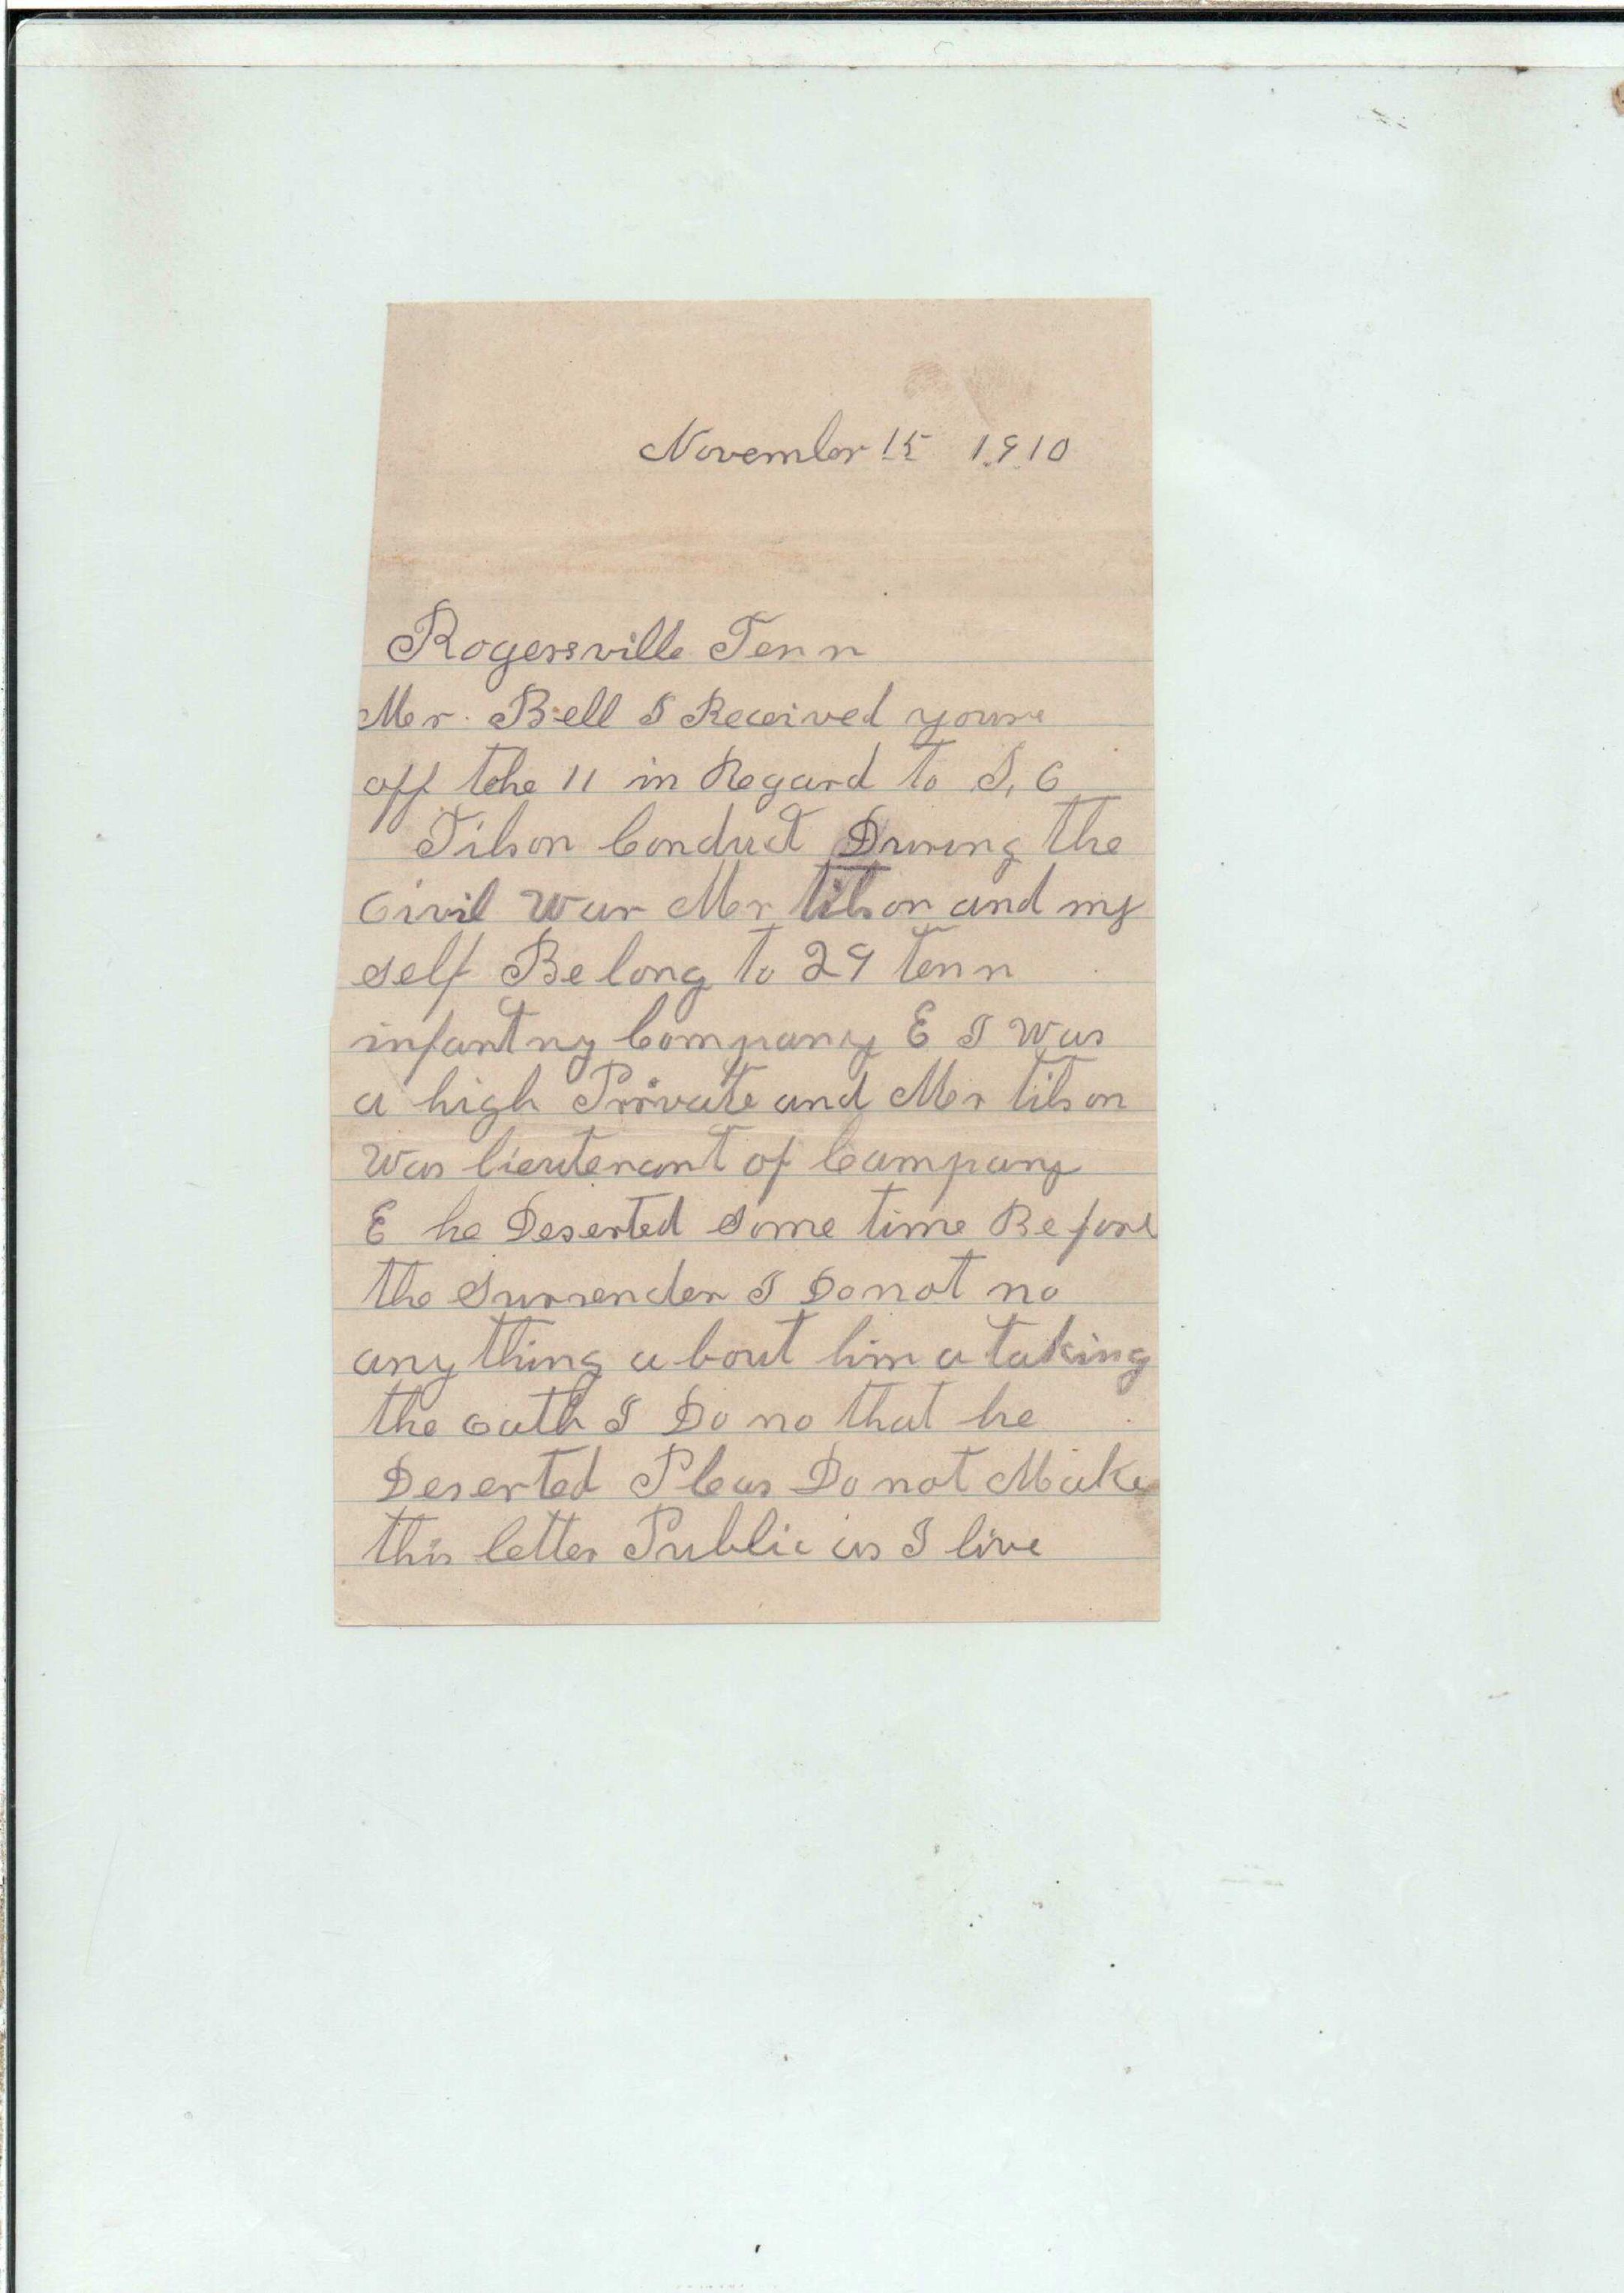 November 15 1910
Rogersville Tenn
Mr. Bell I Received youre
off tehe 11 in Regard to
Tilson Conduct During the
Civil War Mr tilson and my
self Be long to 29 tenn
infantry Company E I Was
a high Private and Mr tilson
Was lieutenant of Company
E he Deserted some time Before
the surrender I Do not no
any thing a bout him a taking
the oath I Do no that he
Deserted Pleas Do not Make
this letter Public as I live